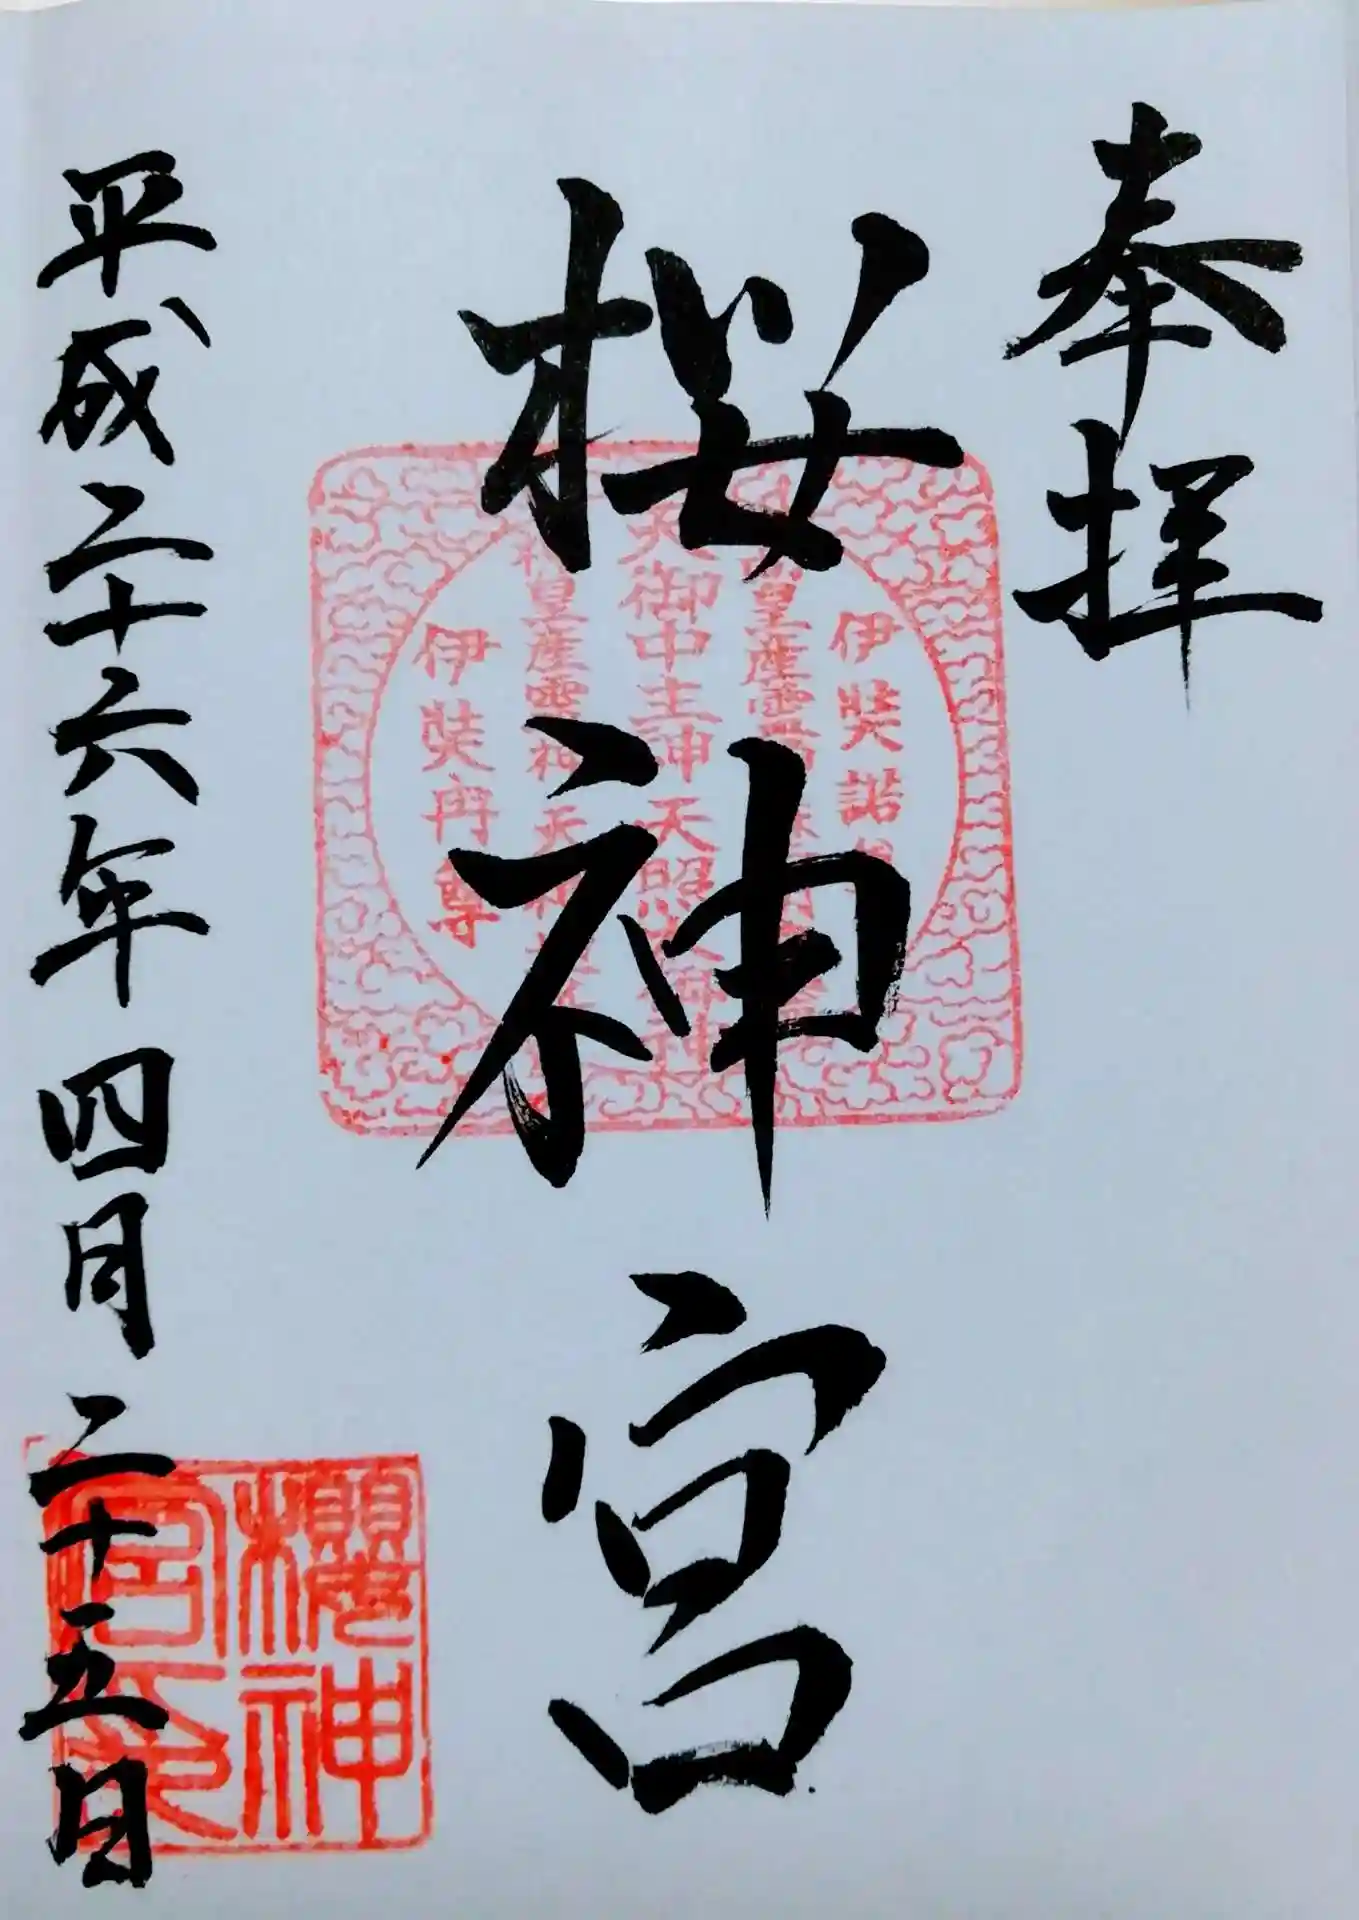 奉拝
桜神宮
伊弉諾
皇産霊
天御中主神天照
皇産霊神
伊弉冉尊
平成二十六年四月二十五日
櫻神
宮印